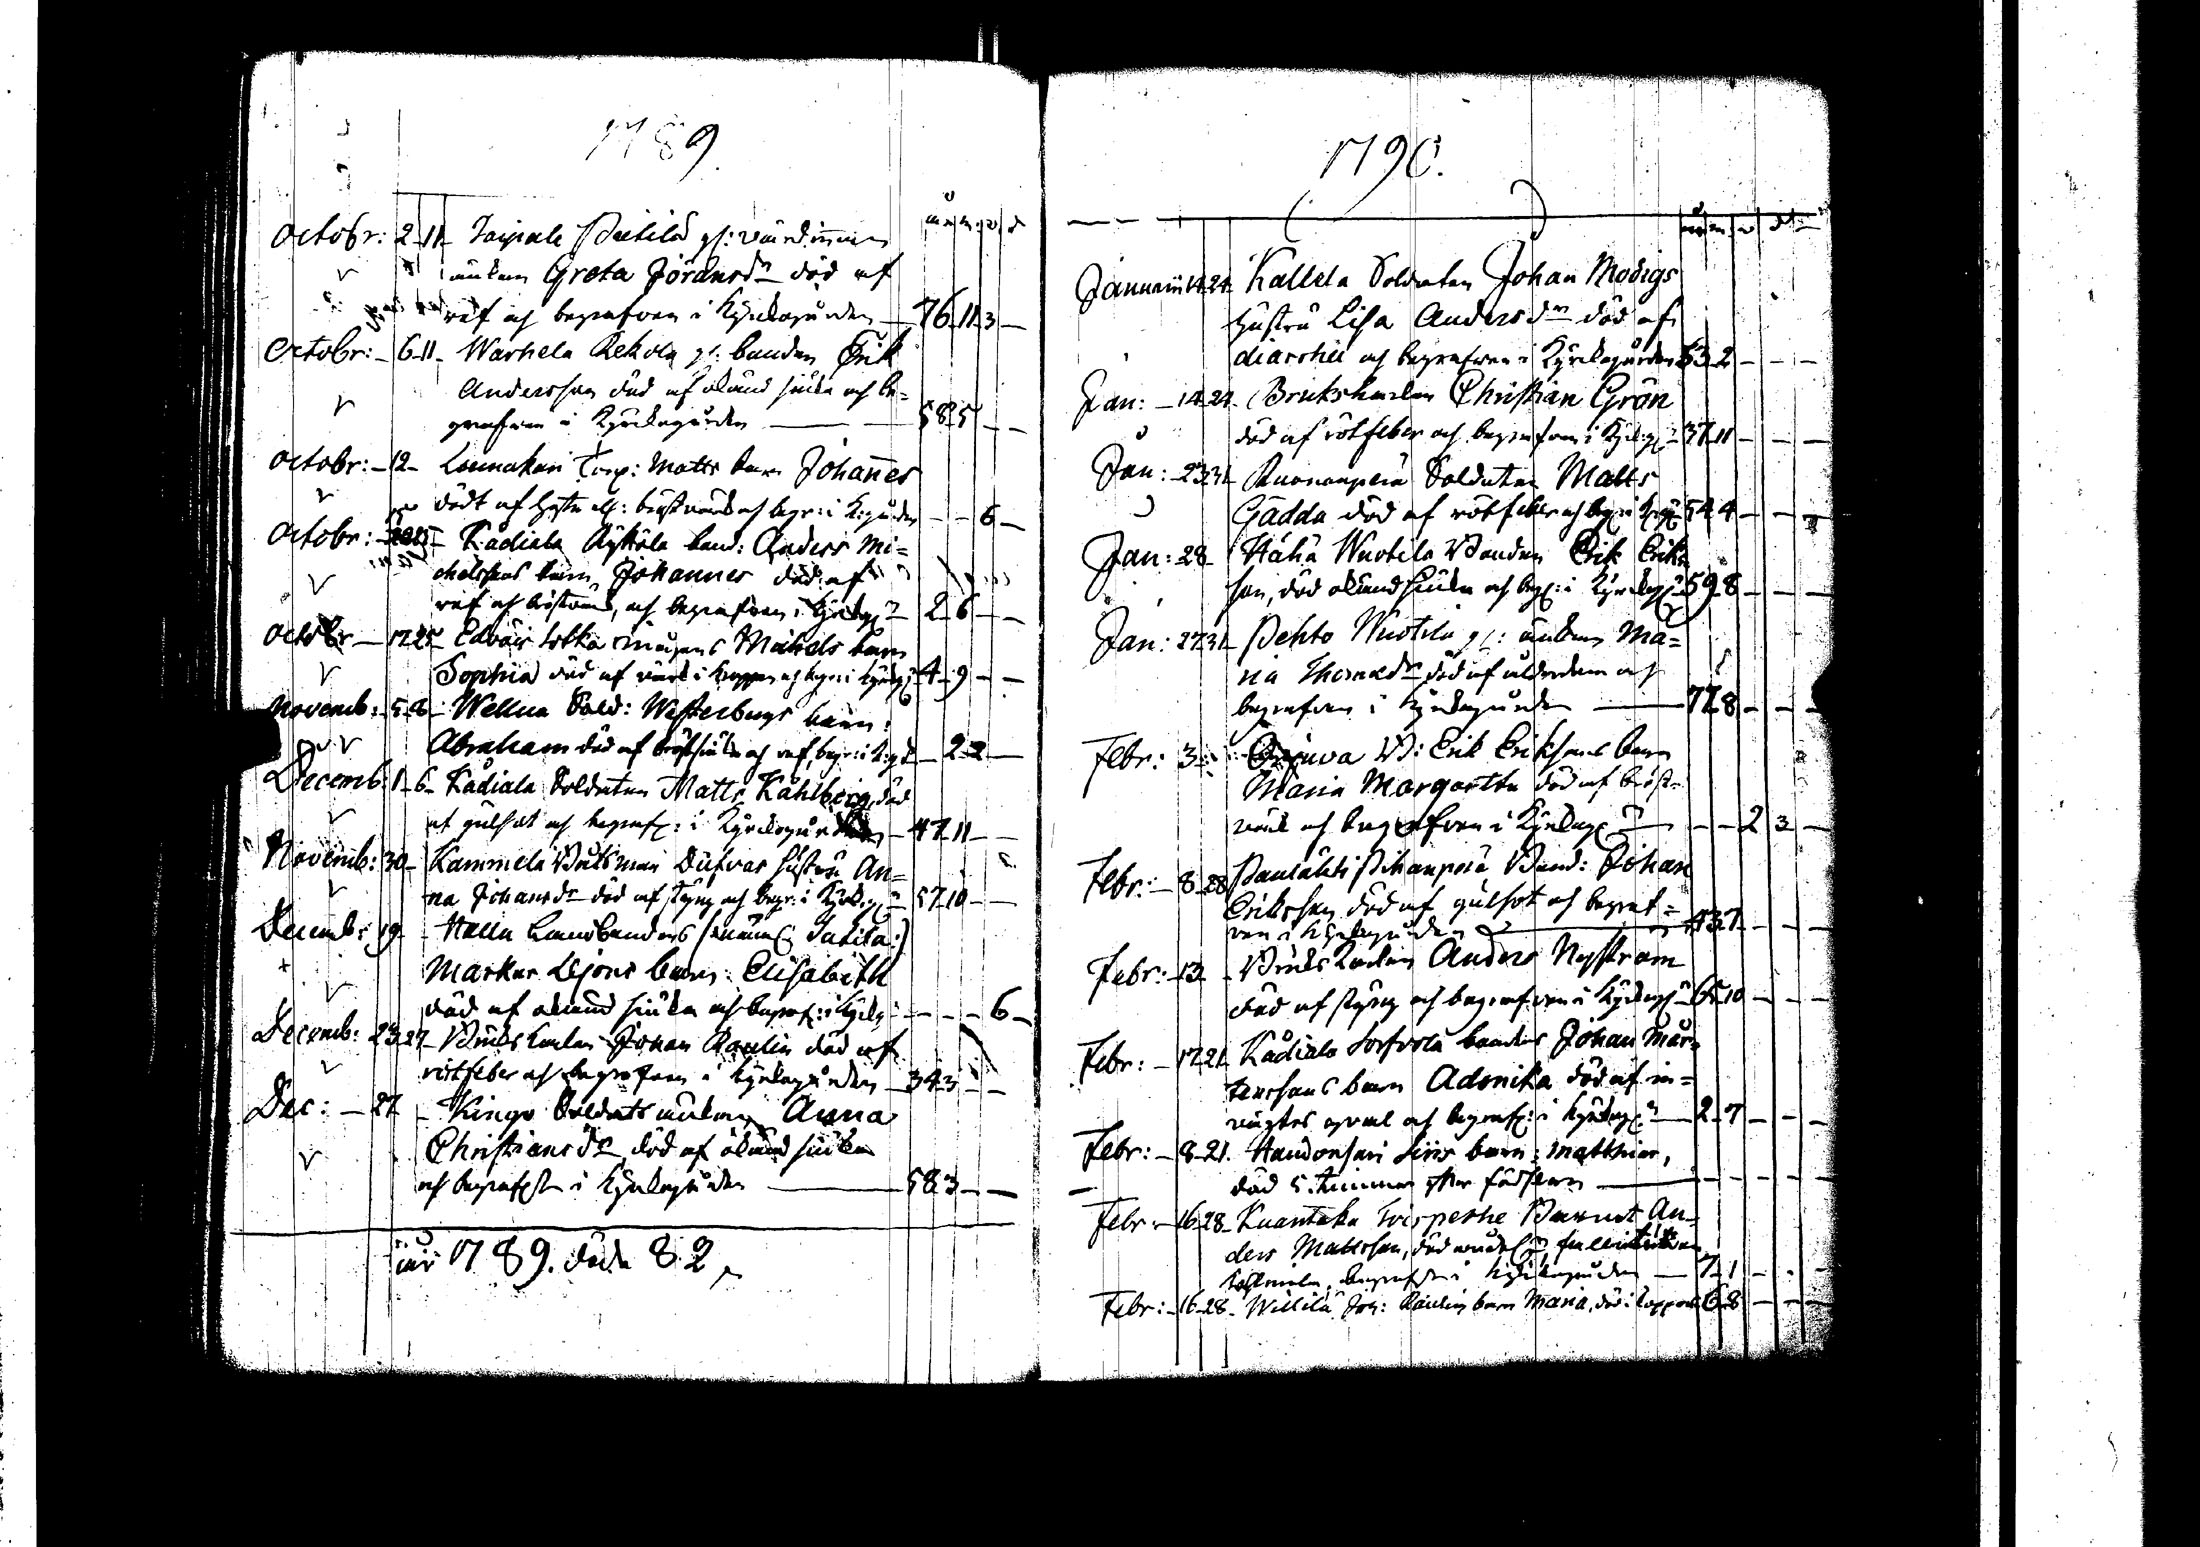 1789.
år m: v d
Octobr: 2 11 Taipale Pietilä gl: värdinnan
änkan Greta Jöransdr död af
ref och begrafven i Kyrkogården — 76 11 3 —
Octobr: 6 11 Warhela Rekola gl: bonden Erik
Andersson död af okänd siuka och be=
grafven i Kyrkogården — 58 5 — —
Octobr: 12 Torp: Matts barn Johañes
dödt af bröstvärk och begr: i K:gården — — 6 —
Octobr: Kådiala Äyhälä bond: Anders Mi=
chelssons barn Johannes död af
ref och bröstvärk, och begrafven i Kyrkog: — 2 6 — —
Octobr — 17 25 Michels barn
Sophia död af värk i kroppen och begr: i Kyrkog: 4 9 — —
Novemb: 5 8 Wellua Sold: Westerbergs barn:
Abraham död af bröstsiuka och ref, begr: i K:gd — 2 2 —
Decemb: 1 6 Kådiala Soldaten Matts Kåhlberg, död
af gulsot och begraf: i Kyrkogården — 47 11 — —
Novemb: 30 Kammela Båtsman Dufvas hustru An=
na Johansdr död af styng och begr: i Kyrkog: — 57 10 — —
Decemb: 19 Halla Landbonders
Markus Lejons barn: Elisabeth
död af okänd siuka och begraf: i Kyrkog: — — — 6 —
Decemb: 23 27 Bruks Karlen Johan Roulin död af
rötfeber och begrafven i Kyrkogården — 34 3 — —
Dec: — 27 Kingo Soldats änkan Anna
Christiansdr död af okänd siuka
och begrafven i Kyrkogården — 58 3 — —
år 1789. döde 82
1790.
år m v d
Januarii 14 24 Kallela Soldaten Johan Modigs
hustru Lisa Andersdr död af
diarrhée och begrafven i Kyrkogården 53 2 — — —
Jan: — 14 24 Brukskarlen Christian Grön
död af rötfeber och begrafven i Kyrkog: 37 11 — — —
Jan: 23 31 Ruonanperä Soldaten Matts
Gädda död af rötfeber och begr: i Kyrkog: 54 4 — — —
Jan: 28 Hähä Wuotila Bonden Erik Eriks
son, död okänd siuka och begr: i Kyrkog: 59 8 — — —
Jan: 27 31 Pehto Wuotila gl: änkan Ma=
ria Thomasdr död af ålderdom och
begrafven i Kyrkogården — 77 8 — — —
Febr: 3 B: Erik Eriksons barn
Maria Margaretha död af bröst=
värk och begrafven i Kyrkog: — — 2 3 —
Febr: — 8 28 Bond: Johan
Eriksson död af gulsot och begraf=
ven i Kyrkogården — 43 7 — — —
Febr: 13 Bruks Karlen Anders Nyström
död af styng och begrafven i Kyrkog: 65 10 — — —
Febr: — 17 21 Kådiala Sorfvola bonden Johan Mår=
tenssons barn Adonika död af in=
värtes qval och begraf: i Kyrkog: — 2 7 — — —
Febr: — 8 21 barn: Matthias,
död 5. timmar efter födslen — — — —
Febr: 16 28 Kuantaka Barnet An=
ders Matsson, död
begrafven i Kyrkogården — 7 1 — — —
Febr: — 16 28 Willilä Joh: Roulins barn Maria, död i koppor 6 8 — — —